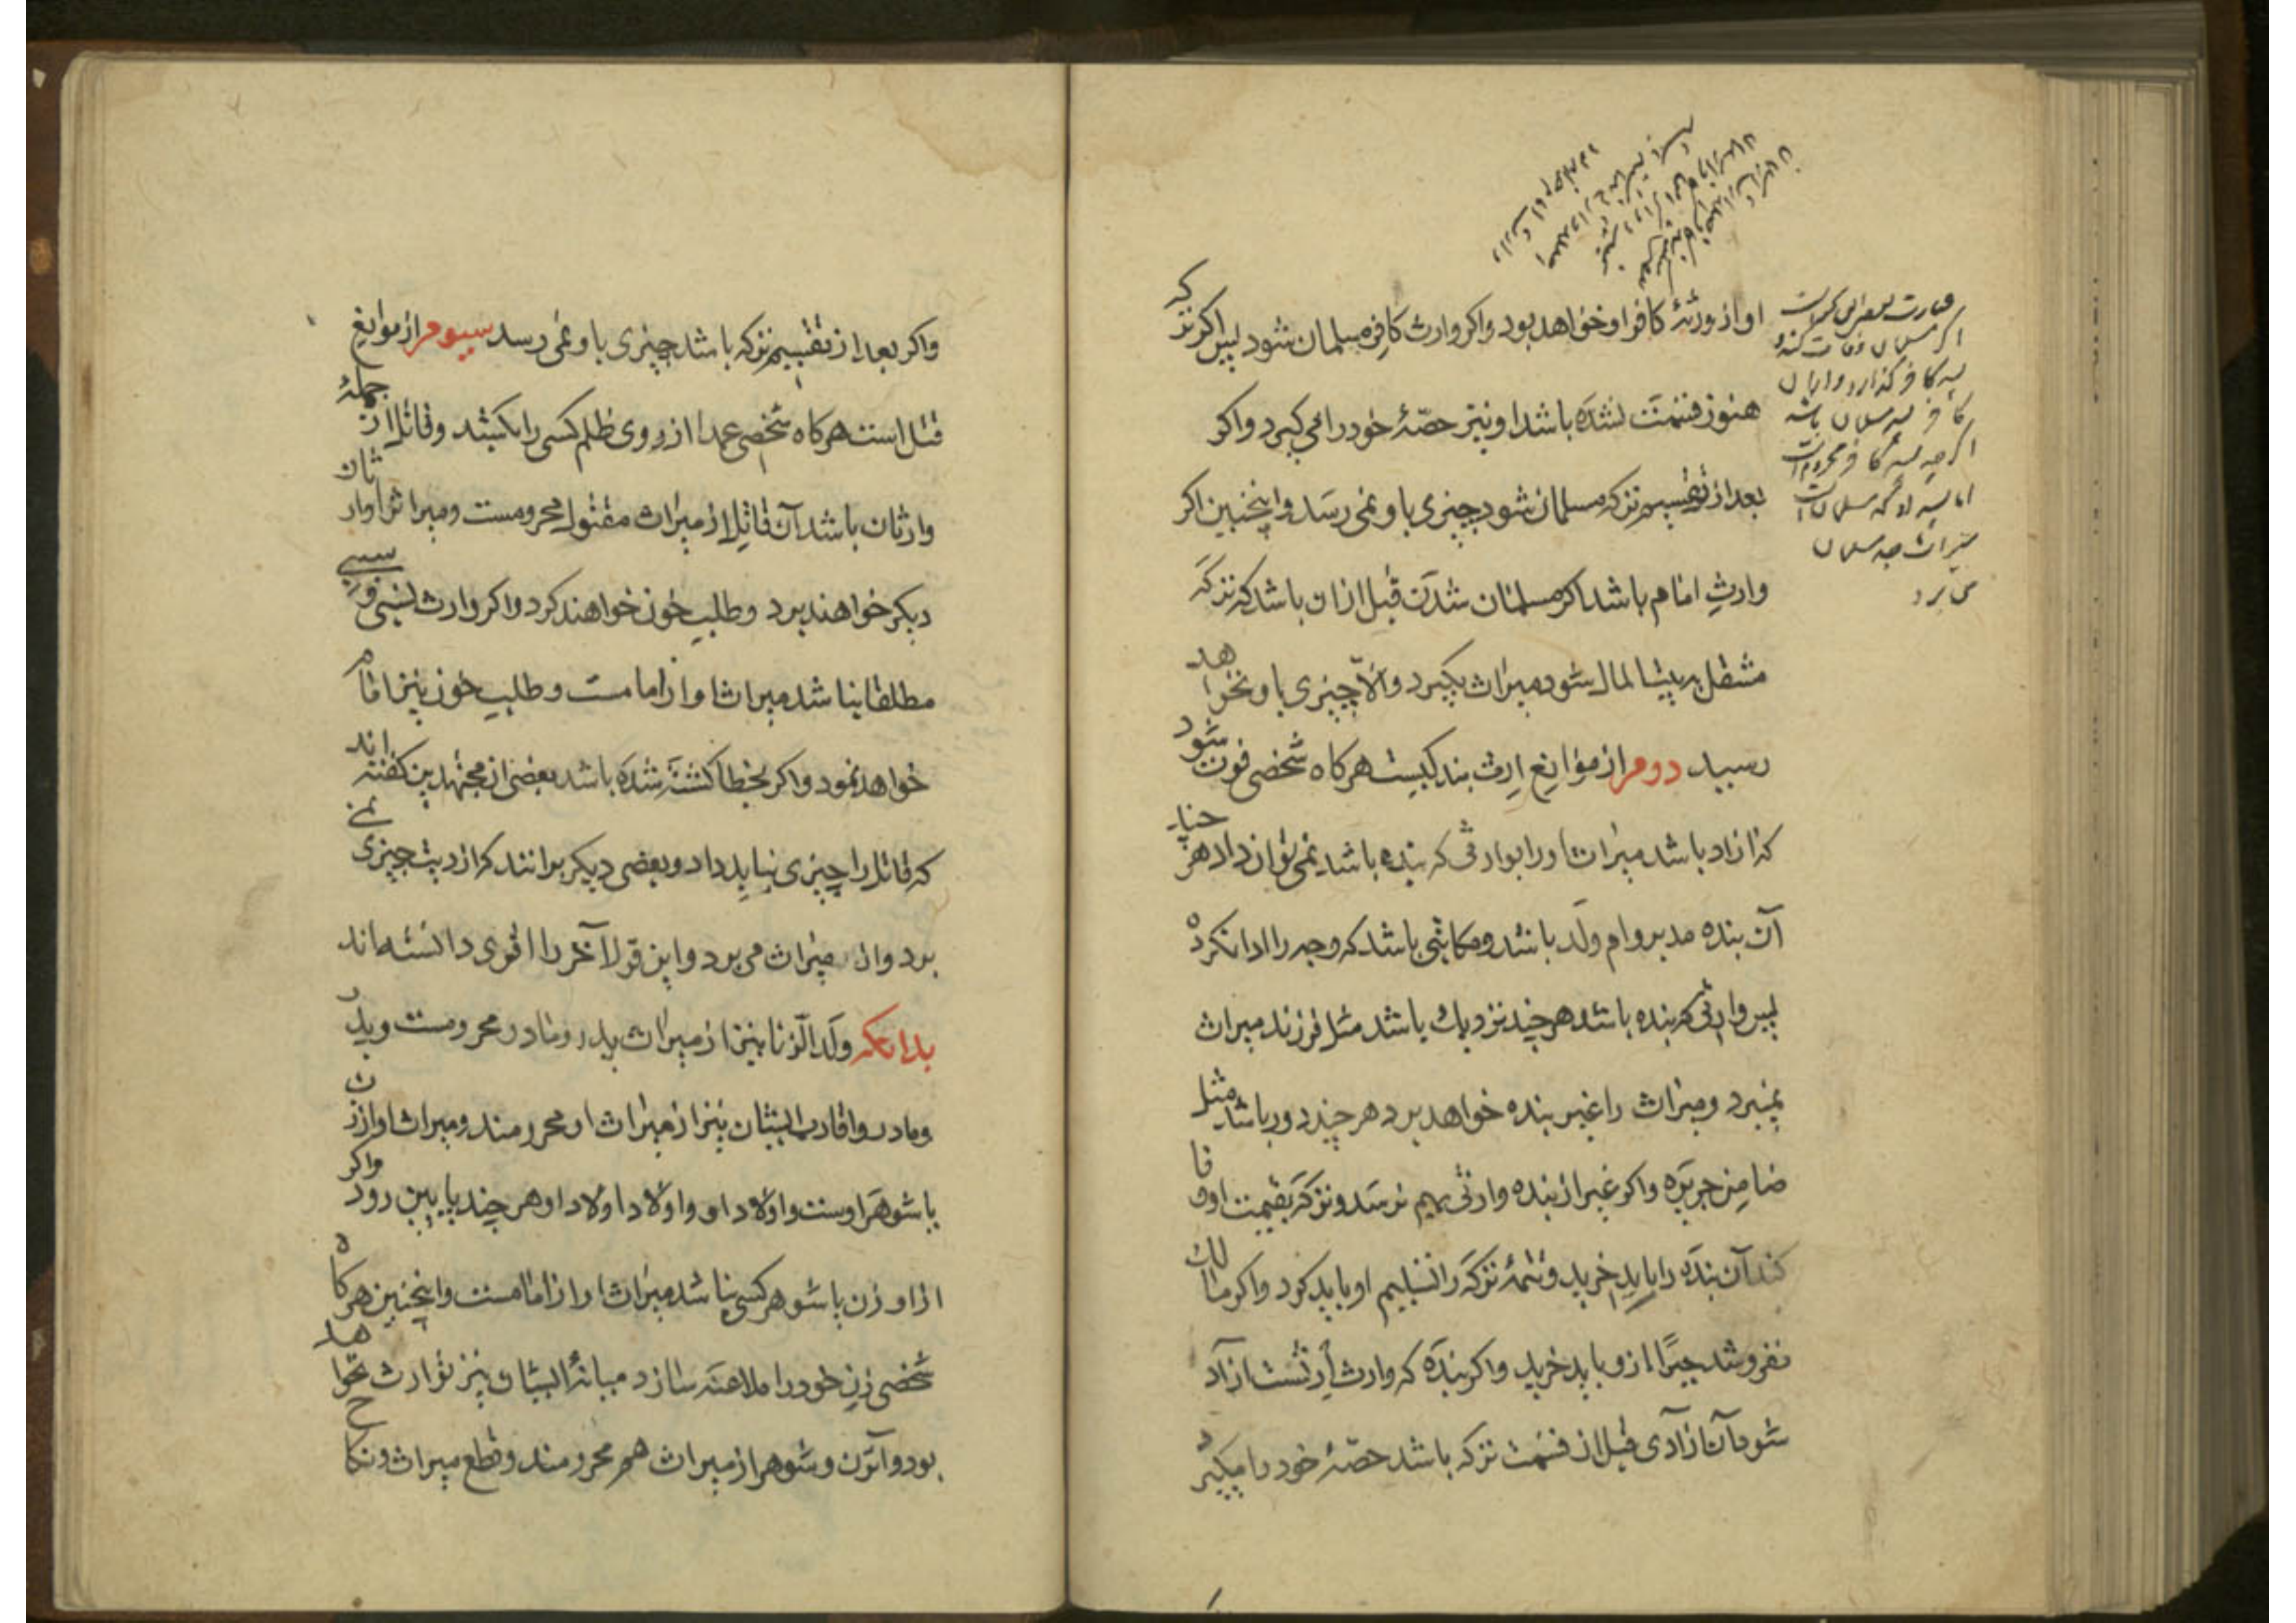 او از ورثهٔ کافر او خواهد بود و اکر وارث کافر مسلمان شود پس اکر ترکه
هنوز قسمت نشده باشد او نیز حصّهٔ خود را می کیرد و اکر
بعد از تقسیم ترکه مسلمان شود چیزی باو نمی رسد و اینچنین اکر
وارث امام باشد اکر مسلمان شدن قبل از ان باشد که ترکه
منتقل به بیت المال شود میراث بکیرد و الّا چیزی باو نخواهد
رسید دوم از موانع ارث بندکیست هرکاه شخصی فوت شود
که ازاد باشد میراث او را بوارثی که بنده باشد نمی توان داد هر چند
آن بنده مدبر و ام ولد باشد و مکاتبی باشد که وجه را ادا نکرده
پس وارثی که بنده باشد هر چند نزدیک باشد مثل فرزند میراث
نمیبرد و میراث را غیر بنده خواهد برد هر چند دور باشد مثل
ضامن جریره و اکر غیر از بنده وارثی بهم نرسد و ترکه بقیمت او وفا
کند آن بنده را باید خرید و تتمهٔ ترکه را تسلیم او باید کرد و اکر مالک
نفروشد جبرًا از و باید خرید و اکر بنده که وارث است ازاد
شود آن آزادی قبل از قسمت ترکه باشد حصّهٔ خود را میکیرد
عبارت
اکر مسلمان وفات کند و
پسر کافر کذارد و از ان
کافر پسر مسلمان باشد
اکر چه پسر کافر محروم است
اما پسر او که مسلمان است
میراث جد مسلمان
می برد
و اکر بعد از تقسیم ترکه باشد چیزی باو نمی رسد سیوم از موانع
قتل است هرکاه شخصی عمدا از روی ظلم کسی را بکشد و قاتل از جملهٔ
وارثان باشد آن قاتل از میراث مقتول محرومست و میراث او را وارثان
دیکر خواهند برد و طلب خون خواهند کرد و اکر وارث نسبی و سببی
مطلقا نباشد میراث او از امامست و طلب خون نیز امام
خواهد نمود و اکر بخطا کشته شده باشد بعضی از مجتهدین کفته اند
که قاتل را چیزی نباید داد و بعضی دیکر برانند که از دیت چیزی نمی
برد و از میراث می برد و این قول آخر را اقوی دانسته اند
بدانکه ولد الزنا نیز از میراث پدر و مادر محرومست و پدر
و مادر و اقارب ایشان نیز از میراث او محرومند و میراث او از زن
یا شوهر اوست و اولاد او و اولاد اولاد او هر چند پایین رود و اکر
از او زن یا شوهر کسی نباشد میراث او از امامست و اینچنین هرکاه
شخصی زن خود را ملاعنه سازد میانهٔ ایشان نیز توارث نخواهد
بود و آن زن و شوهر از میراث هم محرومند و قطع میراث و نکاح